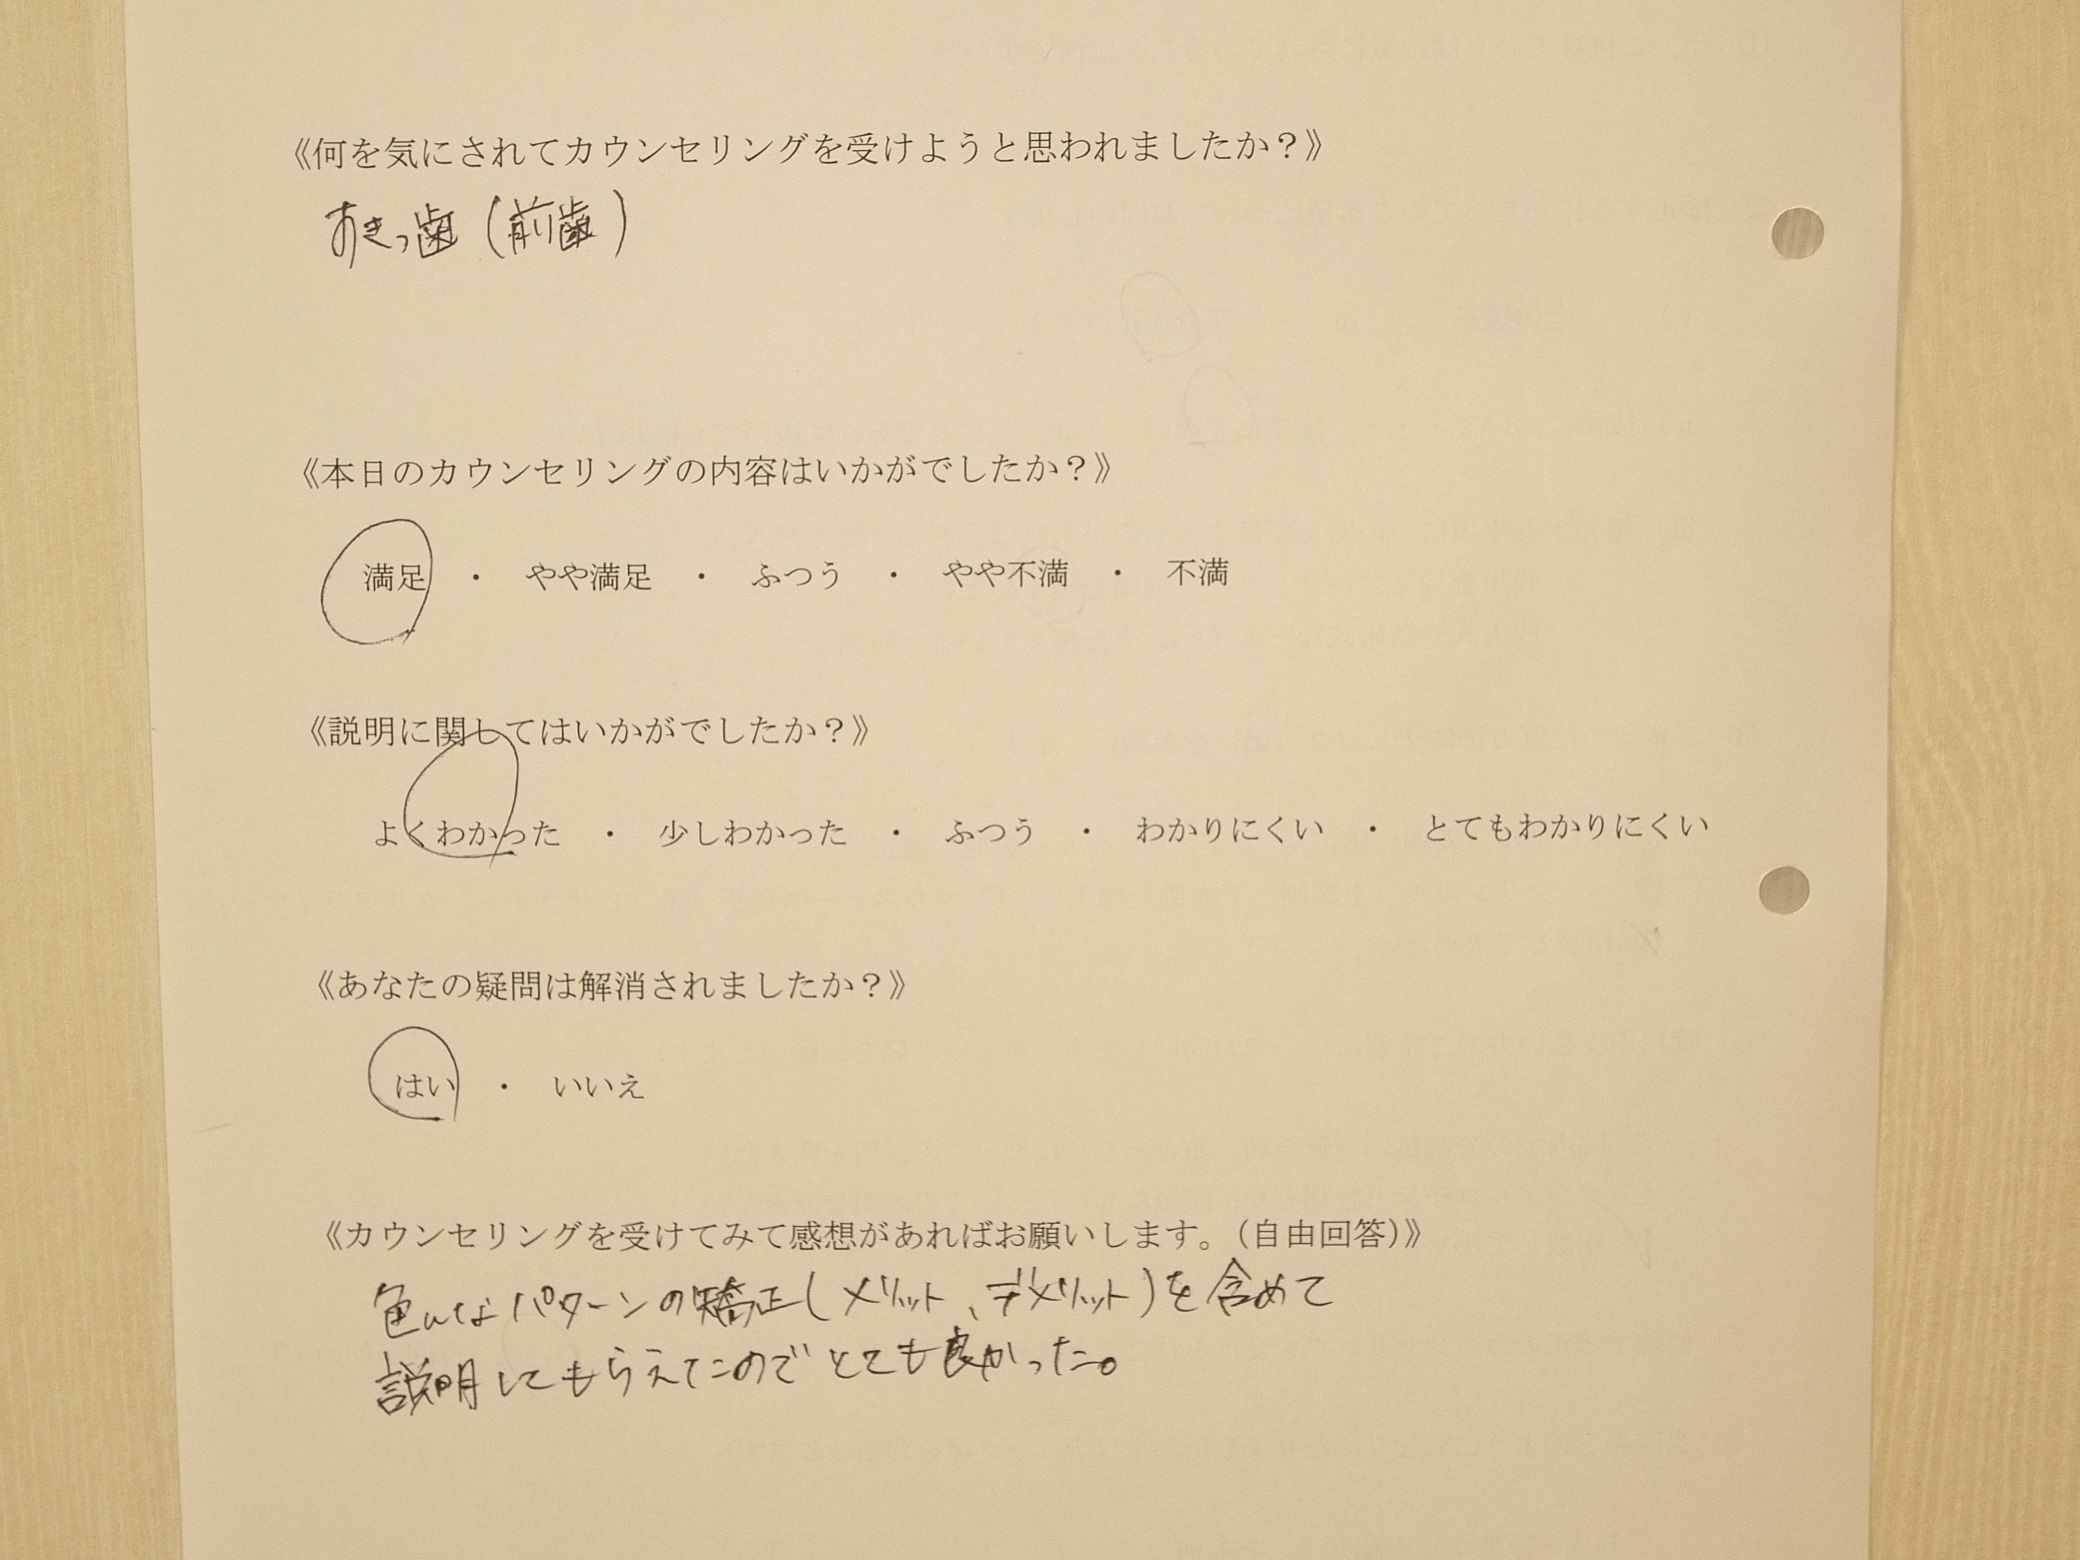 《何を気にされてカウンセリングを受けようと思われましたか？》
すきっ歯（前歯）
《本日のカウンセリングの内容はいかがでしたか？》
満足　・　やや満足　・　ふつう　・　やや不満　・　不満
《説明に関してはいかがでしたか？》
よくわかった　・　少しわかった　・　ふつう　・　わかりにくい　・　とてもわかりにくい
《あなたの疑問は解消されましたか？》
はい　・　いいえ
《カウンセリングを受けてみて感想があればお願いします。（自由回答）》
色んなパターンの矯正（メリット、デメリット）を含めて
説明してもらえたのでとても良かった。